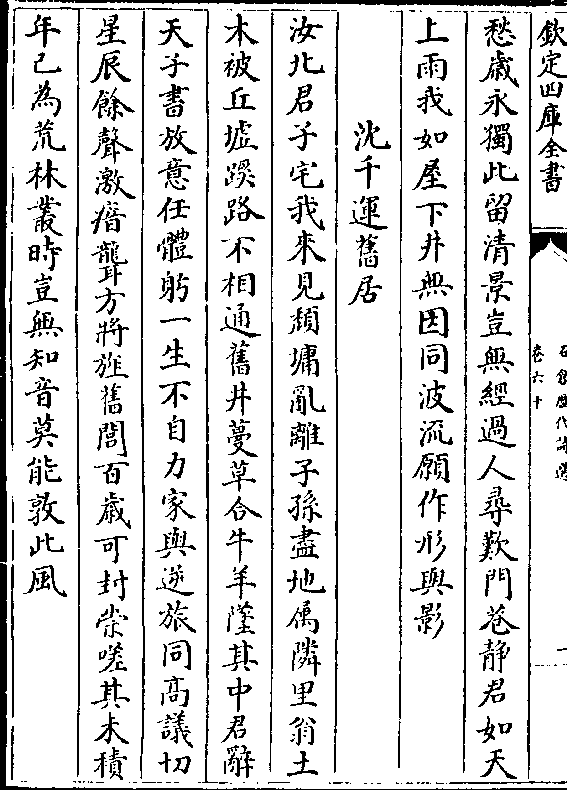 欽定四庫全書
卷六十
愁歳永獨此留清景豈無經過人尋歎門巷静君如天
上雨我如屋下井無因同波流願作形與影
沈千運舊居
汝北君子宅我來見頽墉亂離子孫盡地属隣里翁土
木被丘墟蹊路不相通舊井蔓草合牛羊墜其中君辭
天子書放意任體躬一生不自力家與逆旅同髙議切
星辰餘聲激瘖聾方將旌舊閭百歳可封崇嗟其未積
年已為荒林叢時豈無知音莫能敦此風